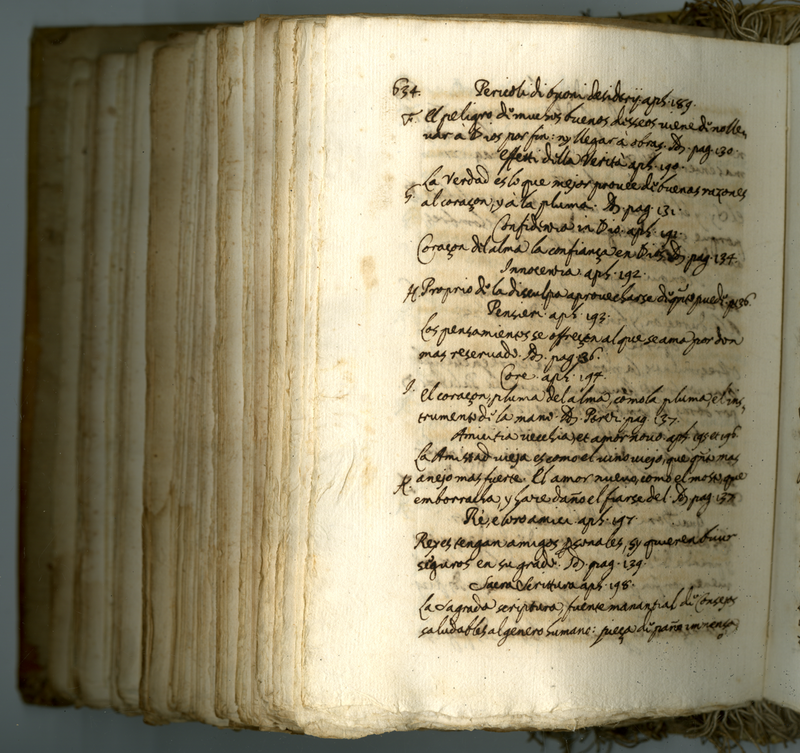 634. Pericoli di buoni desiderij aph. 189.
F. El peligro de muchos buenos desseos viene de no lle,
var a Dios por fin: ny llegar à obras. pag. 130
Effetti della Verità aph. 190.
La Verdad es lo que mejor provee de buenas razones
G. al coraçon, y à la pluma. pag. 131.
Confidenza in Dio. aph. 191.
Coraçon del alma la confiança en Dios. pag. 134.
Innocentia aph. 192.
H. Proprio de la disculpa aprovecharse de qto puede. p. 136.
Pensieri. aph. 193.
Los pensamientos se offreçen al que se ama por don
mas reservado. pag. 36.
Core. aph. 194.
I. El coraçon, pluma del alma, como la pluma, el ins,
trumento de la mano. pag. 137.
Amicitia vecchia, et amor novo. aph. 195 et 196
La Amistad vieja es como el vino viejo, que qto mas
K. anejo mas fuerte. El amor nuevo, como el mosto que
emborracha, y hare daño el fiarse del. pag. 137
Rè, e loro amici. aph. 197
Reyes tengan amigos personales, sy quieren bivir
seguros en su grado. pag. 139.
Sacra Scrittura aph. 198.
La Sagrada scriptura, fuente manantial de Consejos
saludables al genero humano: pieça de paño immensa